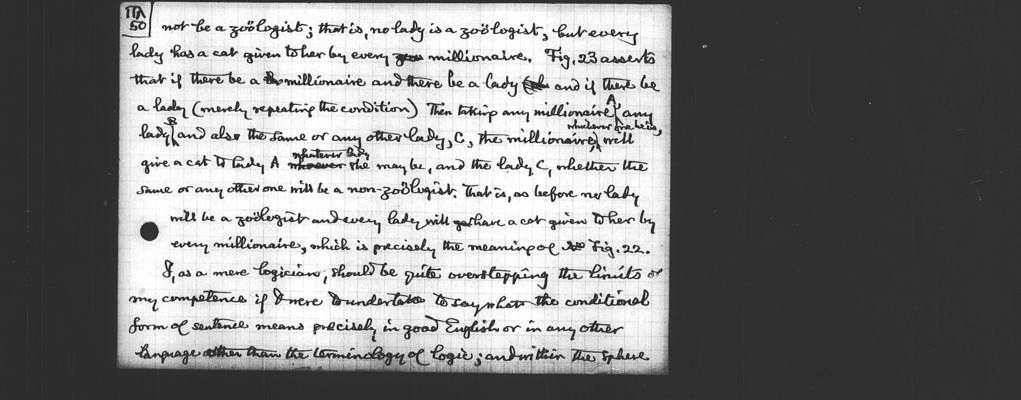 ITA
50
not be a zoölogist; that is, no lady is a zoölogist, but every
lady has a cat given to her by every millionaire. Fig. 23 asserts
that if there be a millionaire and there be a lady and if there be
a lady (merely repeating the condition) Then taking any millionaire, A, any
lady, B, and also the same or any other lady, C, the millionaire, whichever he be, will
give a cat to lady A whoever whatever lady she may be, and the lady C, whether the
same or any other one will be a non-zoölogist. That is, as before no lady
will be a zoölogist and every lady will have a cat given to her by
every millionaire, which is precisely the meaning of Fig. 22.
I, as a mere logician, should be quite overstepping the limits of
my competence if I were to undertake to say what the conditional
form of sentence means precisely in good English or in any other
language other than the terminology of logic; and within the sphere